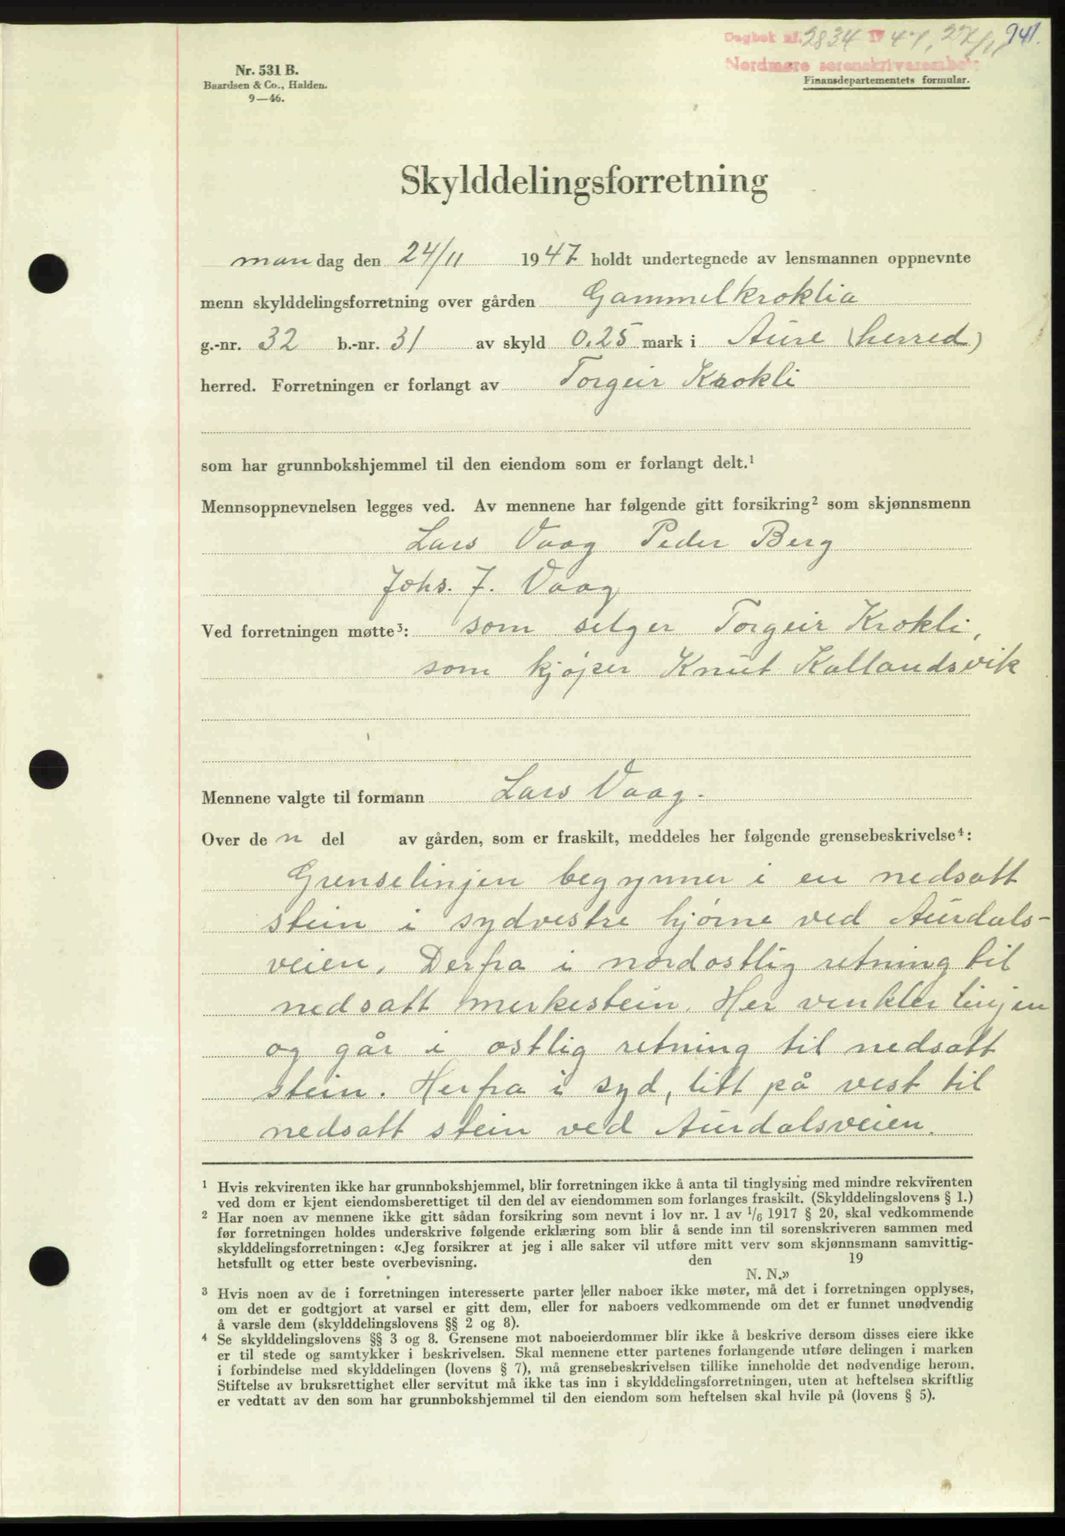 Dagbok nr. 2834 1947, 27/11 941.
Nordmøre sorenskriverembete
Nr. 531 B.
Baardsen & Co., Halden.
9—46.
Finansdepartementets formular.
Skylddelingsforretning
mandag den 24/11 1947 holdt undertegnede av lensmannen oppnevnte
menn skylddelingsforretning over gården Gammelkroklia
g.-nr. 32 b.-nr. 31 av skyld 0.25 mark i Aure (herred)
herred. Forretningen er forlangt av Torgeir Krokli
som har grunnbokshjemmel til den eiendom som er forlangt delt.¹
Mennsoppnevnelsen legges ved. Av mennene har følgende gitt forsikring² som skjønnsmenn
Lars Vaag Peder Berg
Johs. J. Vaag
Ved forretningen møtte³: som selger Torgeir Krokli,
som kjøper Knut Kallandsvik
Mennene valgte til formann Lars Vaag.
Over den del av gården, som er fraskilt, meddeles her følgende grensebeskrivelse⁴:
Grenselinjen begynner i en nedsatt
stein i sydvestre hjørne ved Aurdals-
veien. Derfra i nordostlig retning til
nedsatt merkestein. Her vinkler linjen
og går i ostlig retning til nedsatt
stein. Herfra i syd, litt på vest til
nedsatt stein ved Aurdalsveien.
¹ Hvis rekvirenten ikke har grunnbokshjemmel, blir forretningen ikke å anta til tinglysing med mindre rekvirenten
ved dom er kjent eiendomsberettiget til den del av eiendommen som forlanges fraskilt. (Skylddelingslovens § 1.)
² Har noen av mennene ikke gitt sådan forsikring som nevnt i lov nr. 1 av 1/6 1917 § 20, skal vedkommende
før forretningen holdes underskrive følgende erklæring som blir å sende inn til sorenskriveren sammen med
skylddelingsforretningen: «Jeg forsikrer at jeg i alle saker vil utføre mitt verv som skjønnsmann samvittig-
hetsfullt og etter beste overbevisning. den 19
N. N.»
³ Hvis noen av de i forretningen interesserte parter eller naboer ikke møter, må det i forretningen opplyses,
om det er godtgjort at varsel er gitt dem, eller for naboers vedkommende om det er funnet unødvendig
å varsle dem (skylddelingslovens §§ 2 og 8).
⁴ Se skylddelingslovens §§ 3 og 8. Grensene mot naboeierdommer blir ikke å beskrive dersom disses eiere ikke
er til stede og samtykker i beskrivelsen. Skal mennene etter partenes forlangende utføre delingen i marken
i forbindelse med skylddelingen (lovens § 7), må grensebeskrivelsen tillike inneholde det nødvendige herom.
Stiftelse av bruksrettighet eller servitut må ikke tas inn i skylddelingsforretningen, uten at heftelsen skriftlig
er vedtatt av den som har grunnbokshjemmel til den eiendom som heftelsen skal hvile på (lovens § 5).